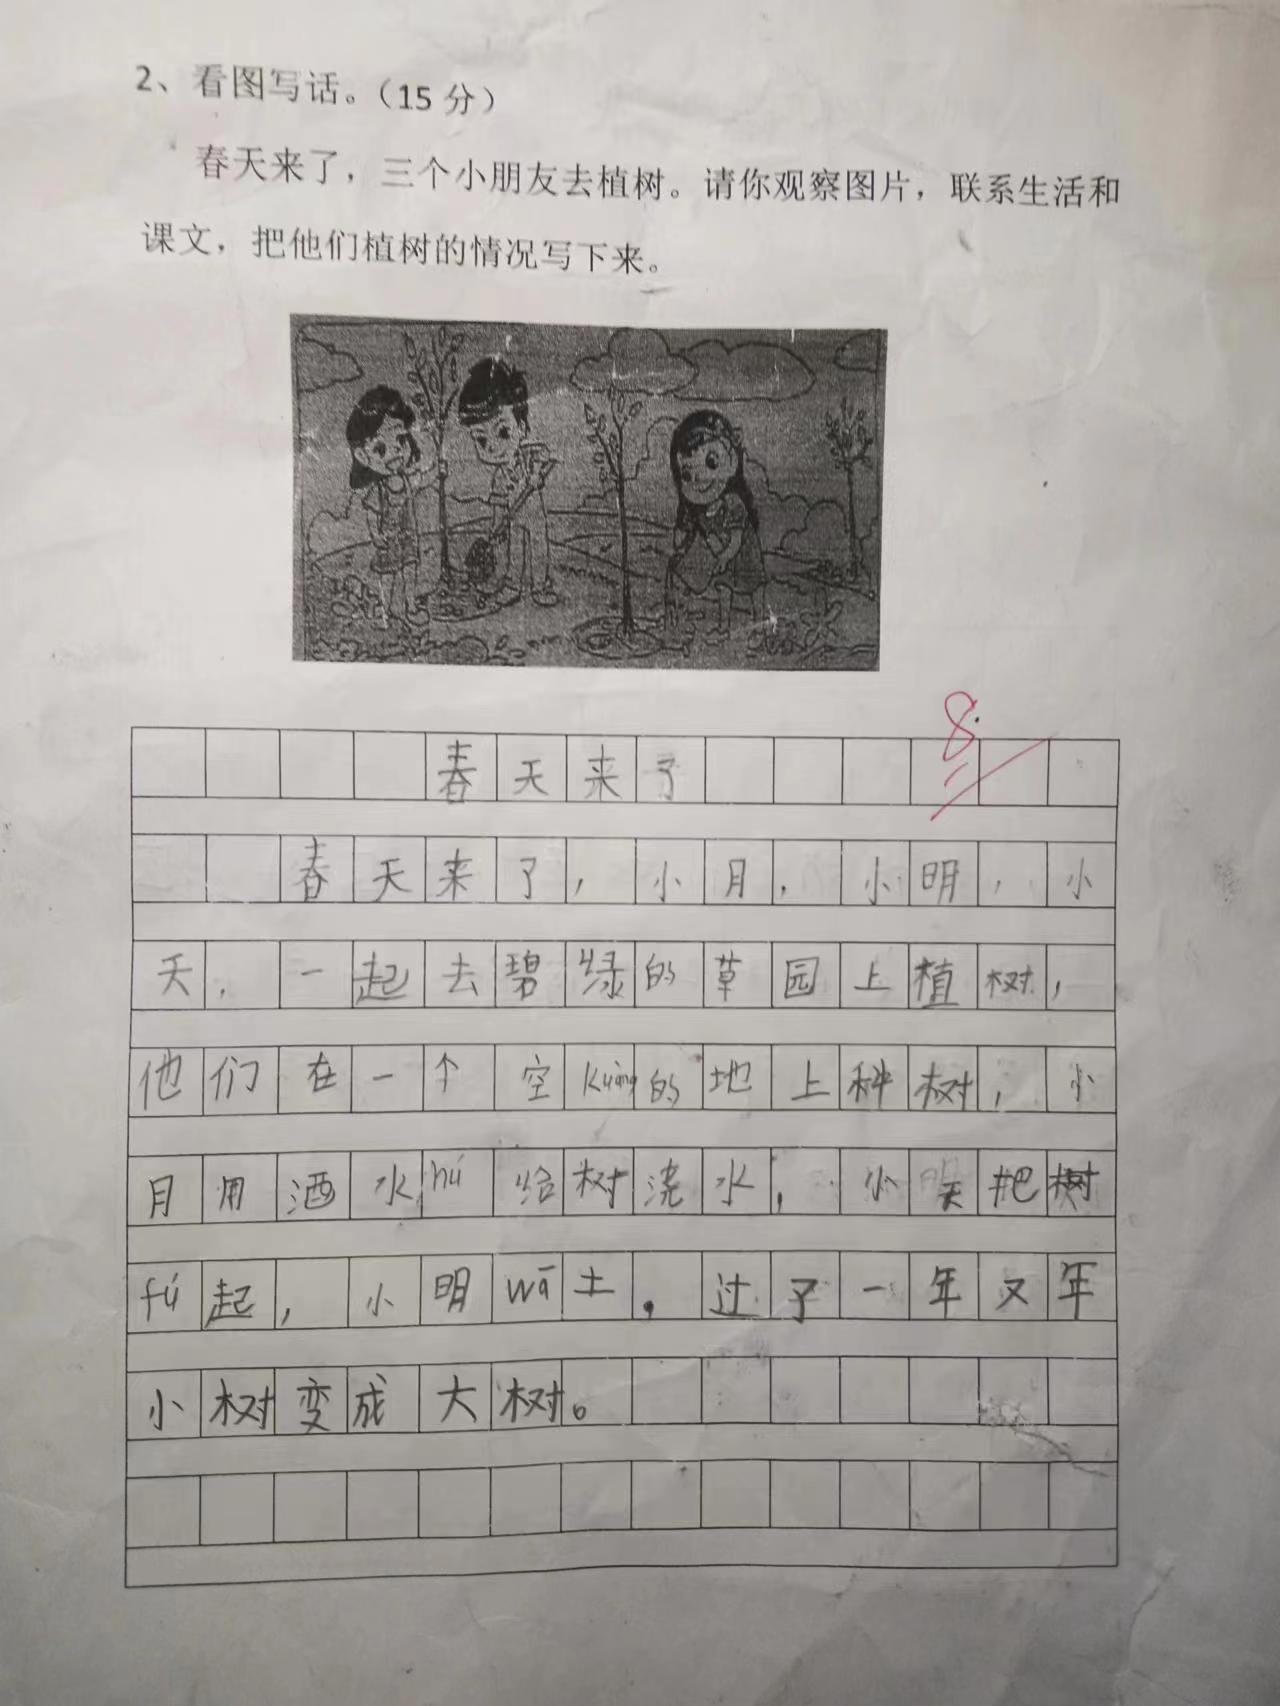 2、看图写话。（15分）
春天来了，三个小朋友去植树。请你观察图片，联系生活和
课文，把他们植树的情况写下来。
8
春天来了
春天来了，小月，小明，小
天，一起去碧绿的草园上植树，
他们在一个空kuàng的地上种树，小
月用洒水hú给树浇水，小天把树
fú起，小明wā土。过了一年又年
小树变成大树。